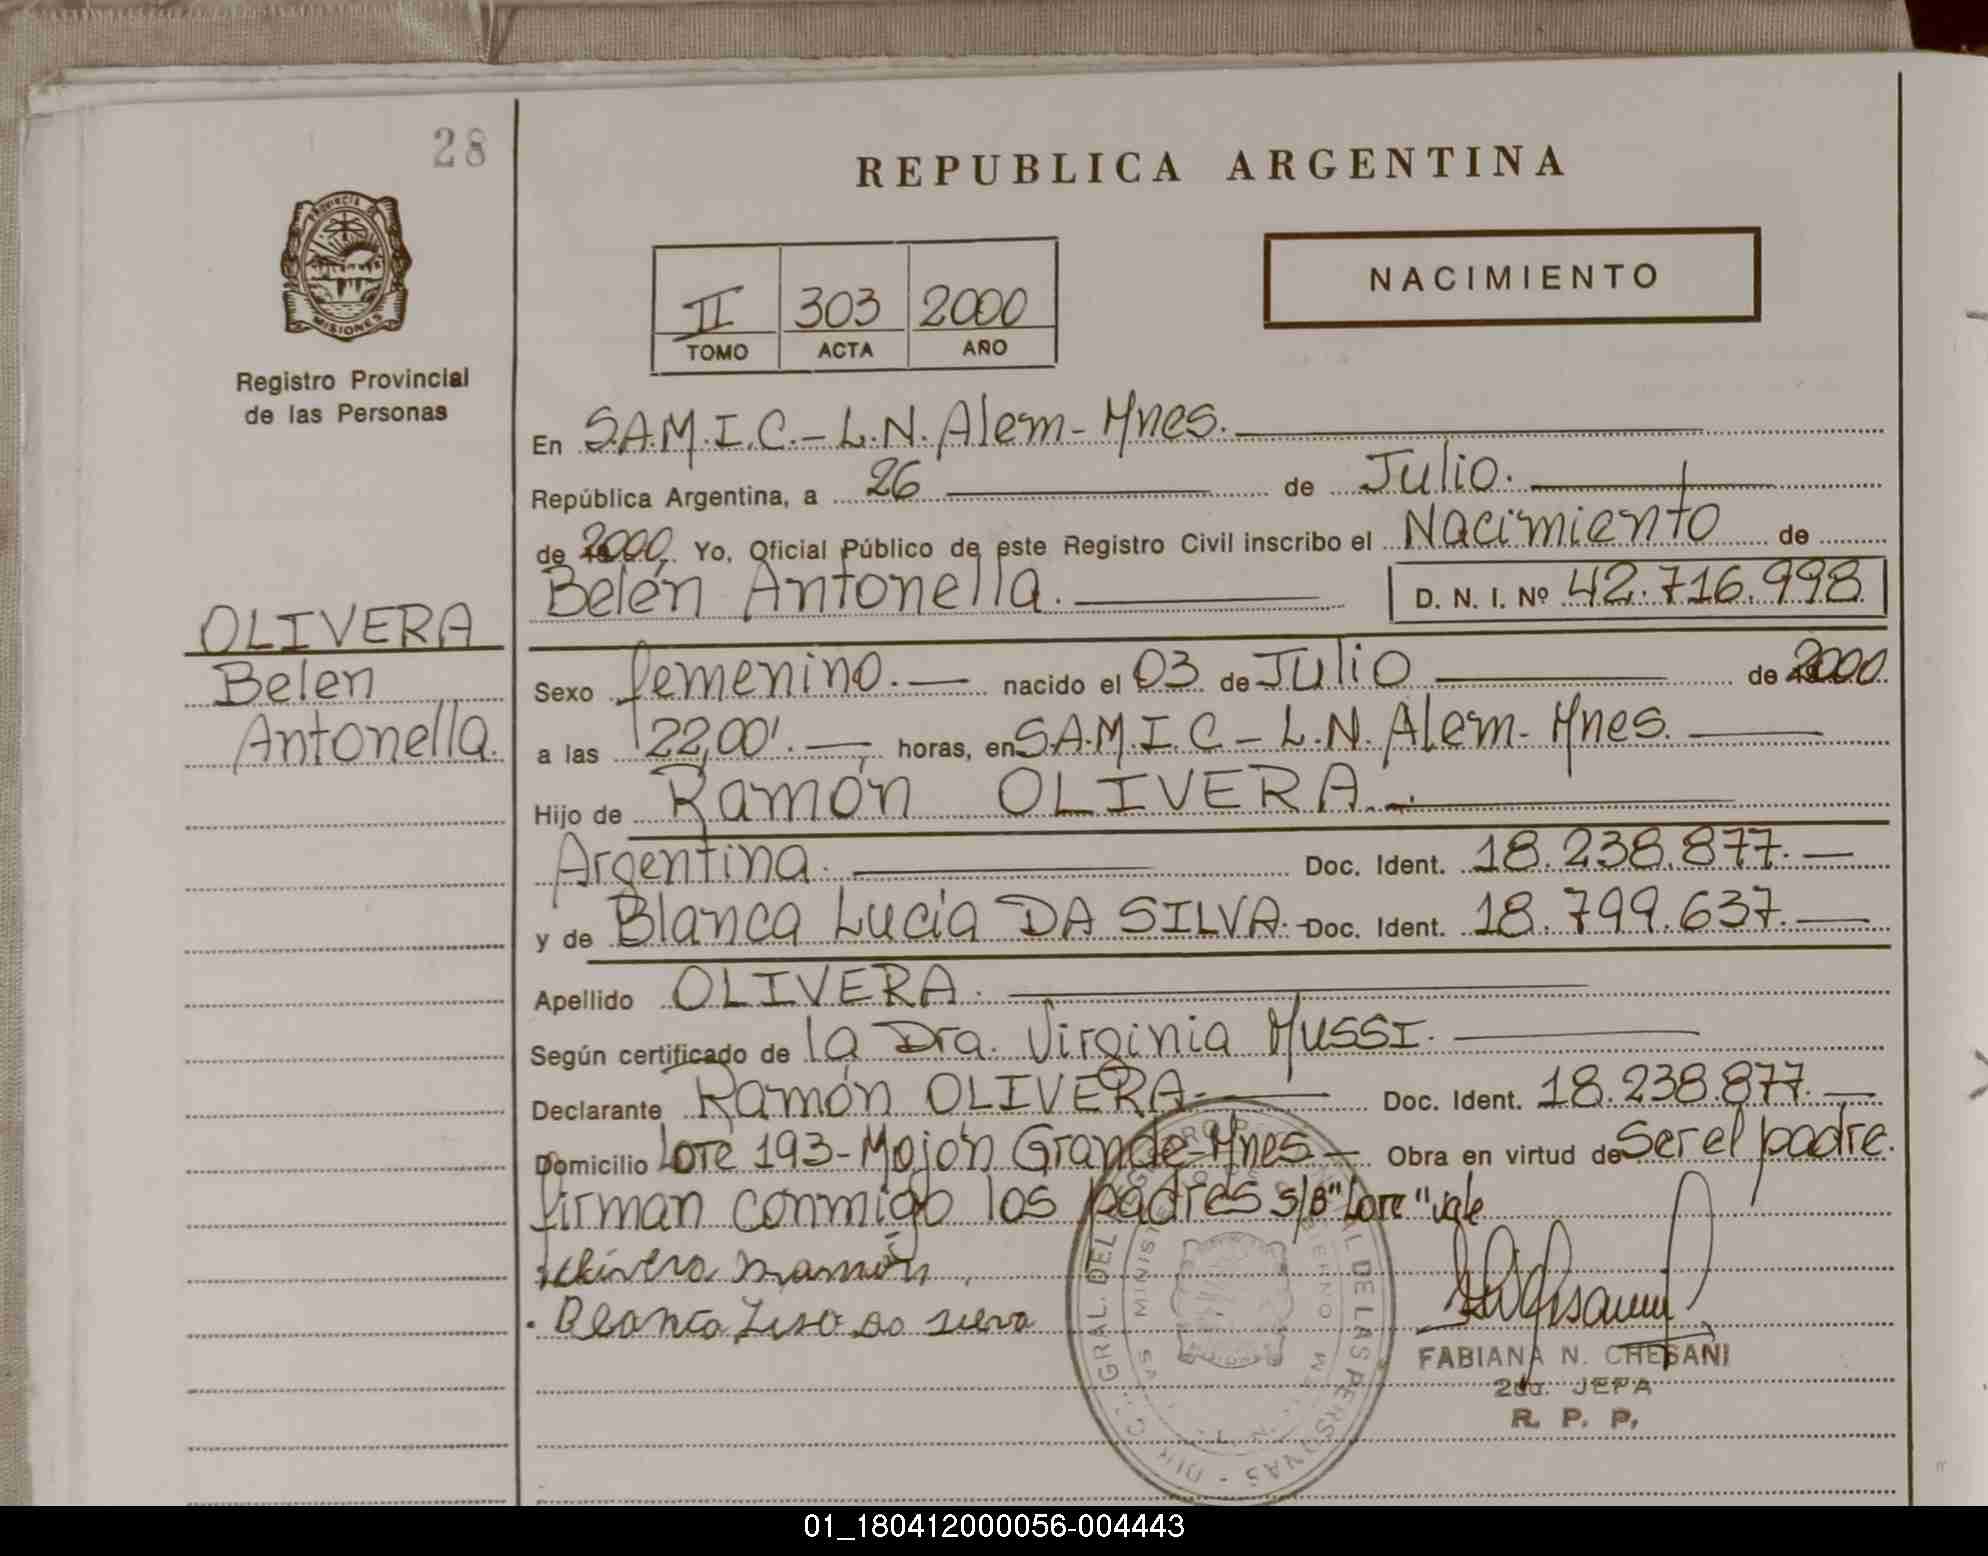 28
REPUBLICA ARGENTINA
PROVINCIA DE
MISIONES
Registro Provincial
de las Personas
II 303 2000
TOMO ACTA AÑO
NACIMIENTO
En S.A.M.I.C.-L.N. Alem-Mnes.
República Argentina, a 26 de Julio.
de 2000. Yo, Oficial Público de este Registro Civil inscribo el Nacimiento de
Belén Antonella. D. N. I. Nº 42.716.998
OLIVERA
Belen
Antonella.
Sexo femenino. nacido el 03 de Julio de 2000
a las 22,00'. horas, en S.A.M.I.C-L.N. Alem-Mnes.
Hijo de Ramón OLIVERA.
Argentina. Doc. Ident. 18.238.877.
y de Blanca Lucía DA SILVA. Doc. Ident. 18.799.637.
Apellido OLIVERA.
Según certificado de la Dra. Virginia MUSSI.
Declarante Ramón OLIVERA. Doc. Ident. 18.238.877.
Domicilio Lote 193-Mojón Grande-Mnes Obra en virtud de Ser el padre.
firman conmigo los padres s/B "Lote" vale
Ramón
Blanca
FABIANA N. CHESANI
2do. JEFA
R. P. P.
01_180412000056-004443